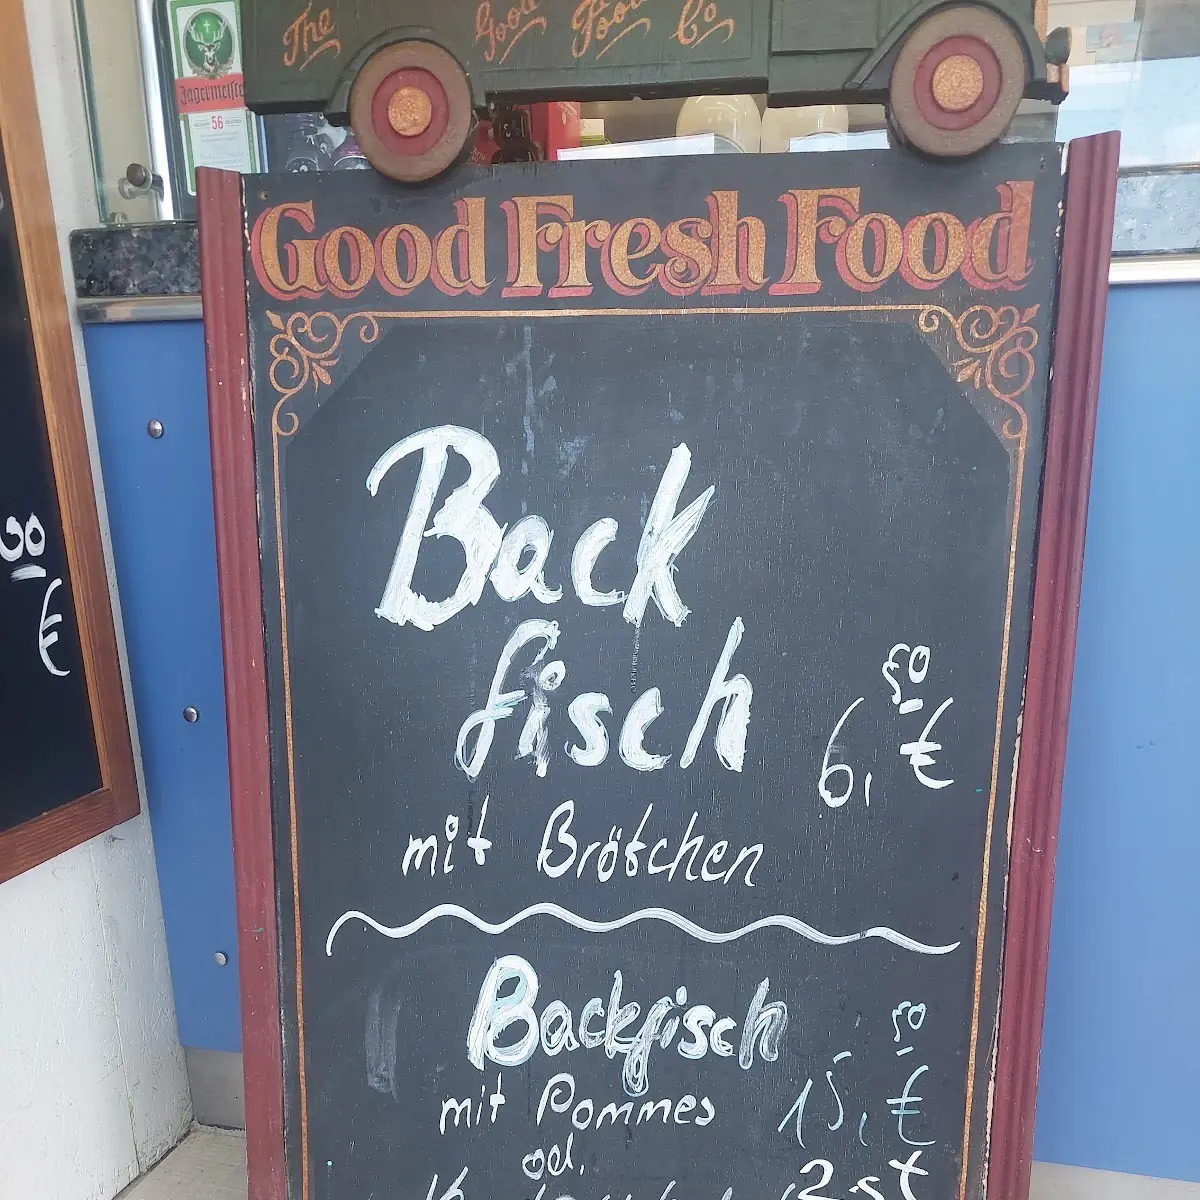 The Good Food Co
Jägermeister
56
Good Fresh Food
Back
fisch
6,50 €
mit Brötchen
Backfisch
mit Pommes
15,50 €
od.
2 st
€